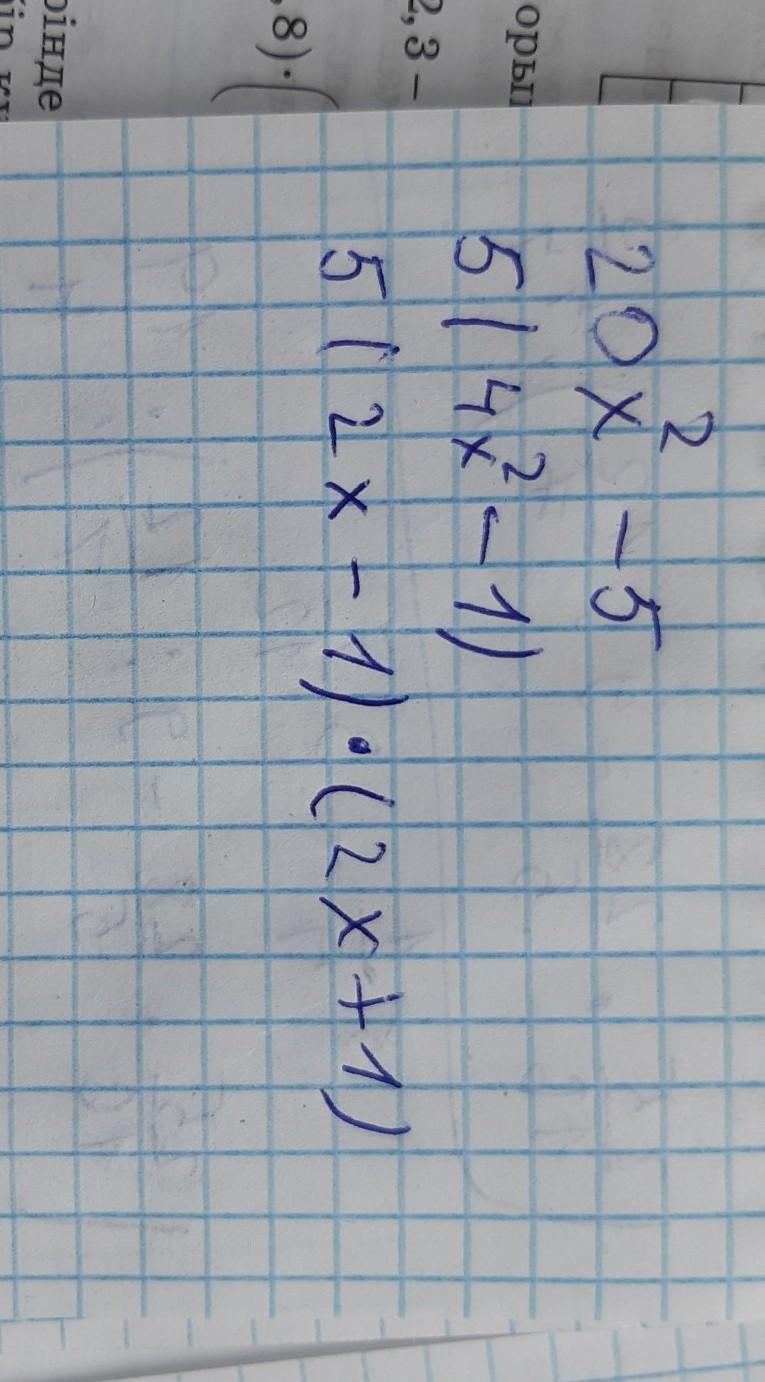 орып
2,3 –
,8) · (
рінде
20x² - 5
5(4x² - 1)
5(2x - 1) · (2x + 1)